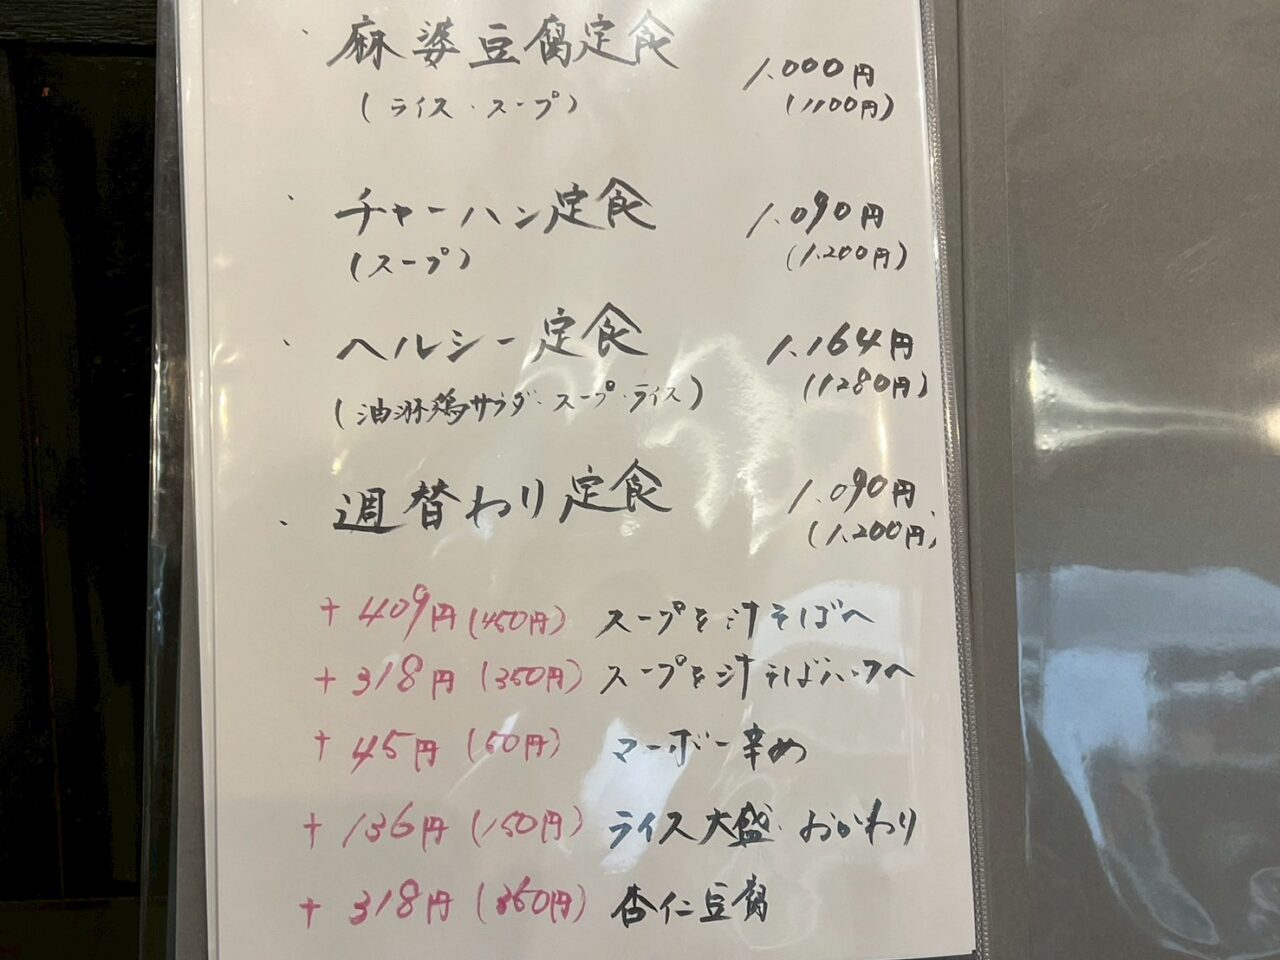 ・麻婆豆腐定食 1.000円
(ライス・スープ) (1100円)
・チャーハン定食 1.090円
(スープ) (1.200円)
・ヘルシー定食 1.164円
(油淋鶏サラダ・スープ・ライス) (1280円)
・週替わり定食 1.090円
(1.200円)
+409円(450円) スープを汁そばへ
+318円(350円) スープを汁そばハーフへ
+45円(50円) マーボー辛め
+136円(150円) ライス大盛・おかわり
+318円(350円) 杏仁豆腐